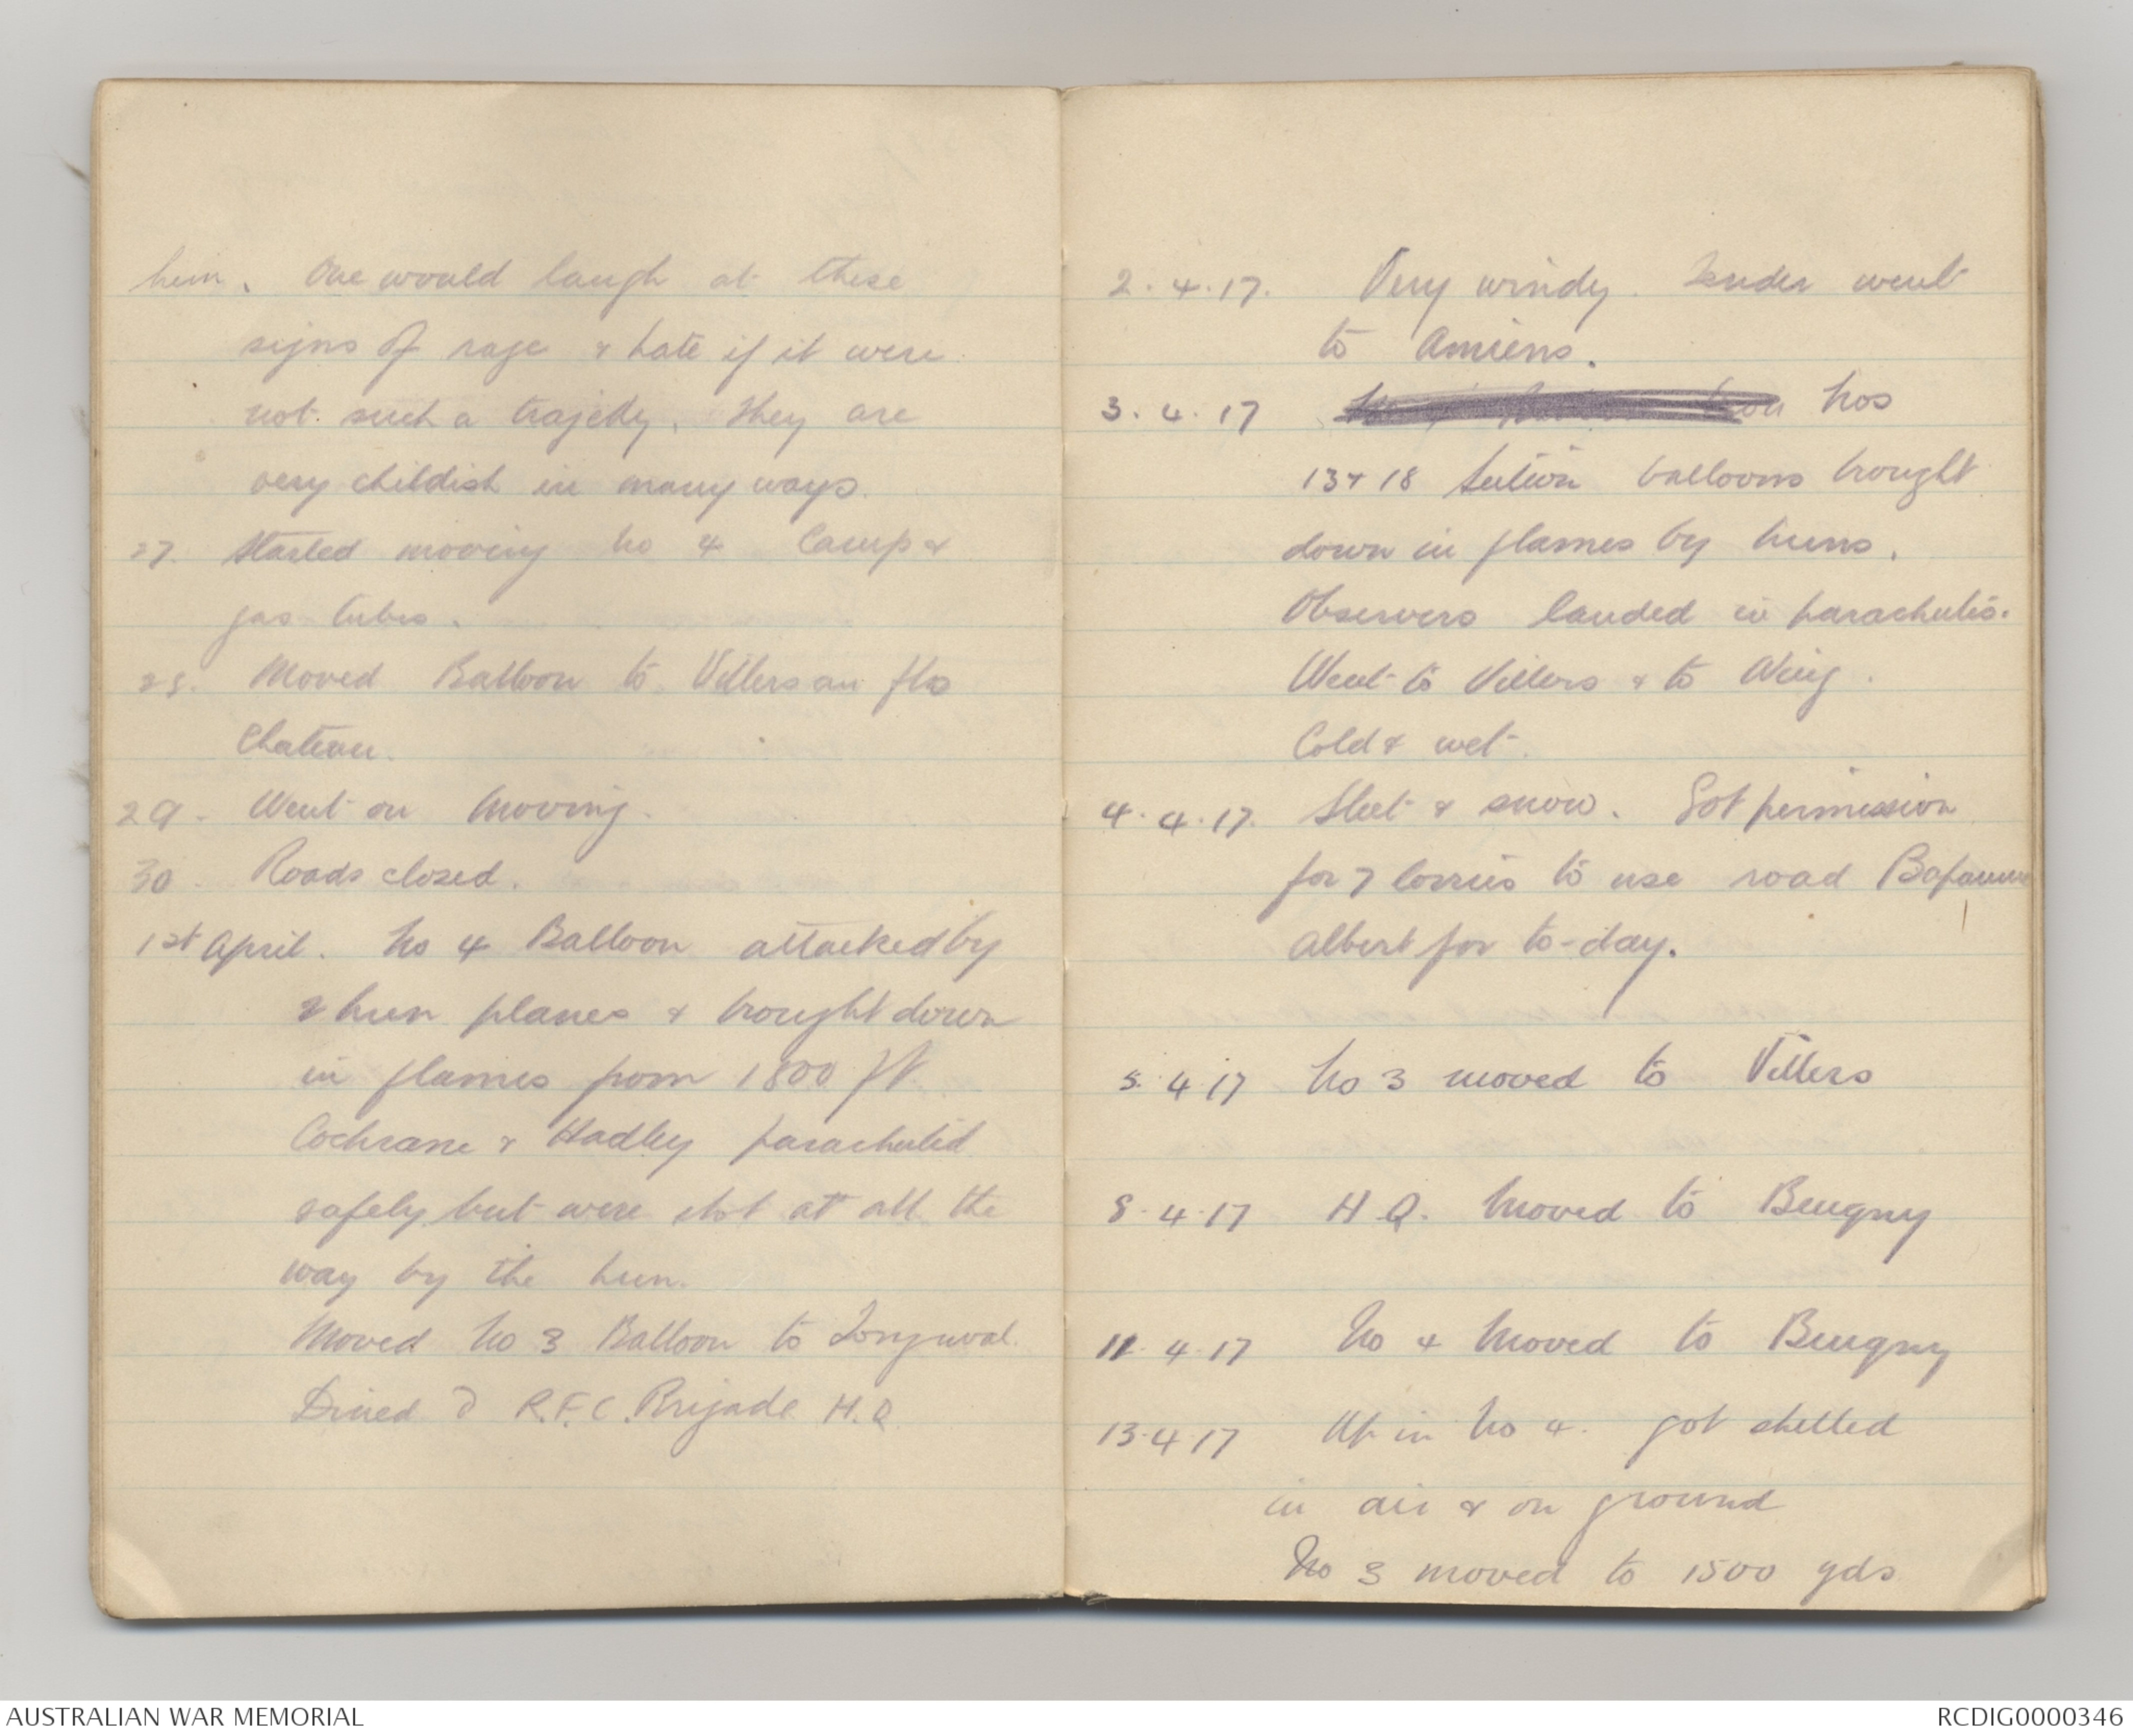 him. One would laugh at these
signs of rage & hate if it were
not such a trajedy. They are
very childish in many ways.
27. Started moving No 4 Camp &
gas tubes.
28. Moved Balloon to Villers au flos
Chateau.
29. Went on moving.
30. Roads closed.
1st April. No 4 Balloon attacked by
2 hun planes & brought down
in flames from 1800 ft.
Cochrane & Hadley parachuted
safely but were shot at all the
way by the hun.
Moved No 3 Balloon to Longuval.
Dined R.F.C. Brigade H.Q.
2.4.17. Very windy. Tender went
to Amiens.
3.4.17 Nos
13 & 18 Section balloons brought
down in flames by huns.
Observers landed in parachutes.
Went to Villers & to Wing.
Cold & wet.
4.4.17. Sleet & snow. Got permission
for 7 lorries to use road Bapaume
Albert for to-day.
5.4.17 No 3 moved to Villers
8.4.17 H.Q. Moved to Beugny
11.4.17 No 4 Moved to Beugny
13.4.17 Up in No 4. got shelled
in air & on ground
No 3 moved to 1500 yds
AUSTRALIAN WAR MEMORIAL
RCDIG0000346